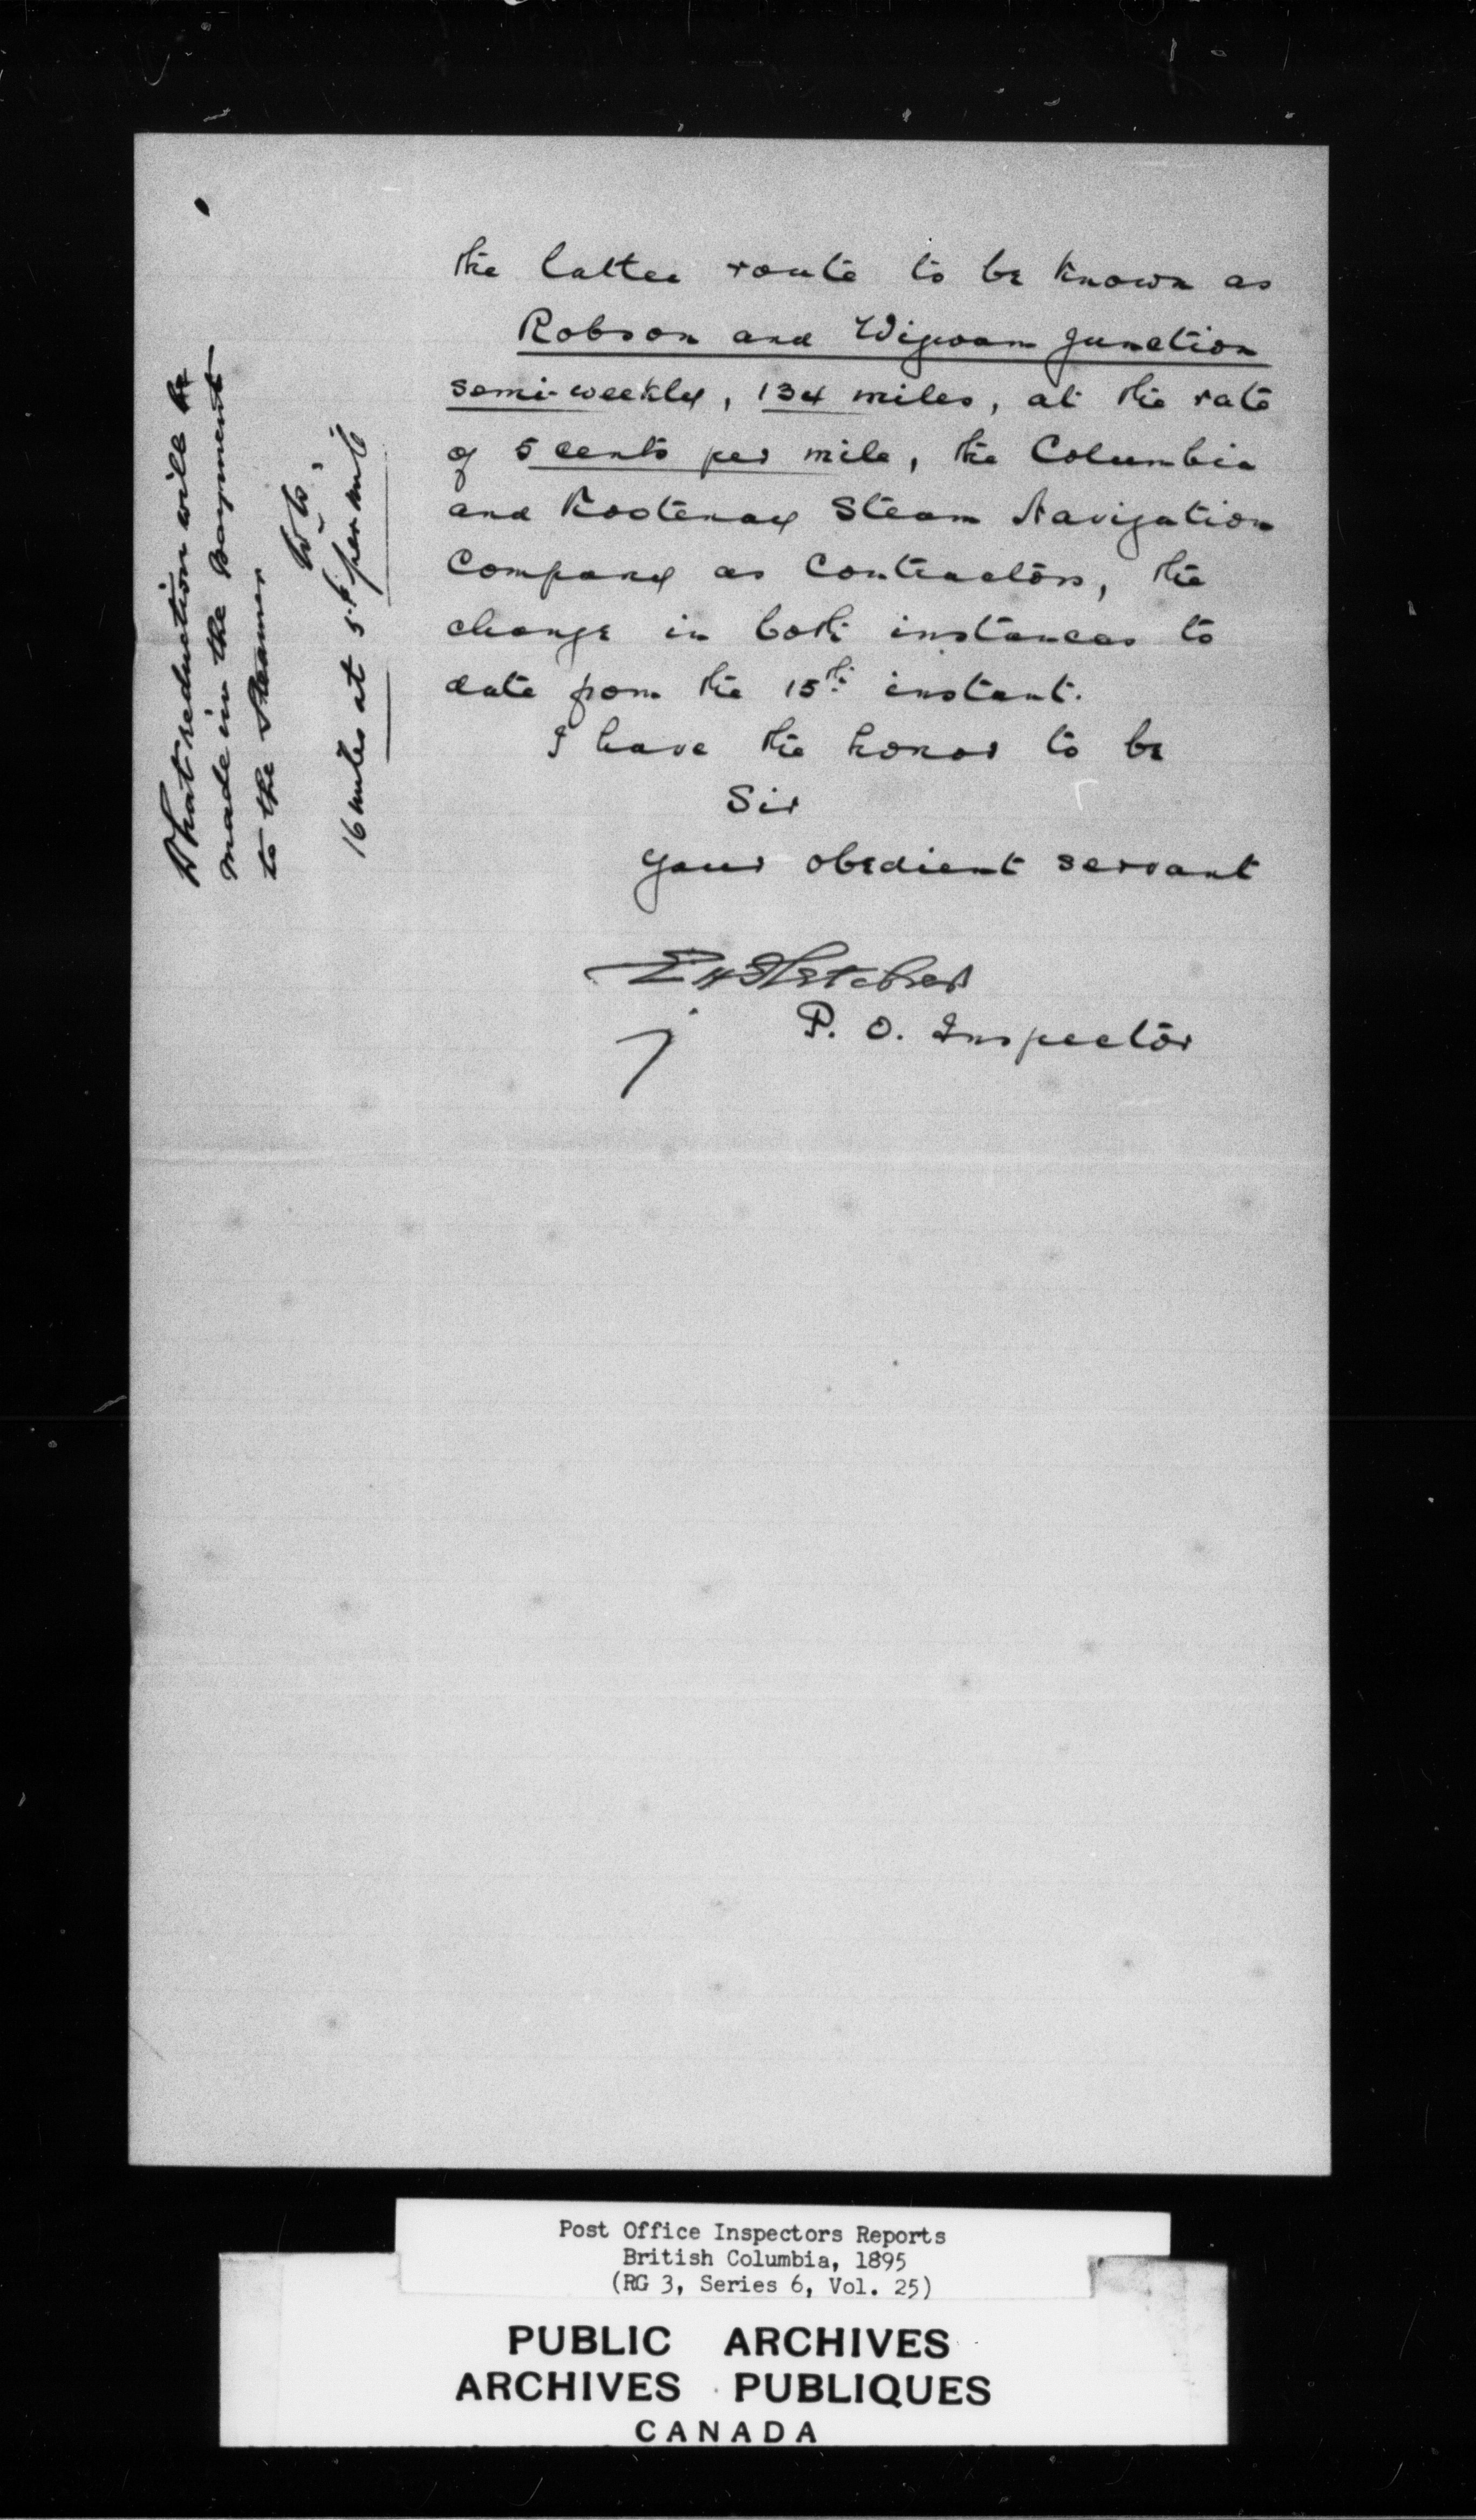 the latter route to be known as
Robson and Wigwam Junction
semi-weekly, 134 miles, at the rate
of 5 cents per mile, the Columbia
and Kootenay Steam Navigation
Company as Contractors, the
change in both instances to
date from the 15th instant.
I have the honor to be
Sir
Your obedient servant
EHFletcher
P. O. Inspector
What reduction will be
made in the payment
to the Steamer
16 miles at 5¢ per mile
Post Office Inspectors Reports
British Columbia, 1895
(RG 3, Series 6, Vol. 25)
PUBLIC ARCHIVES
ARCHIVES PUBLIQUES
CANADA